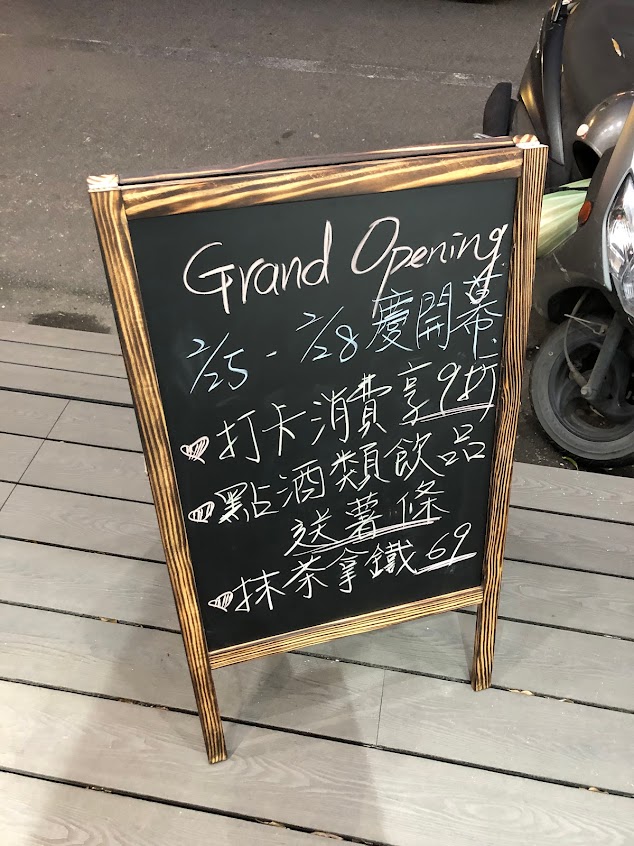 Grand Opening
2/25 - 2/28 慶開幕
打卡消費享9折
點酒類飲品
送薯條
抹茶拿鐵69